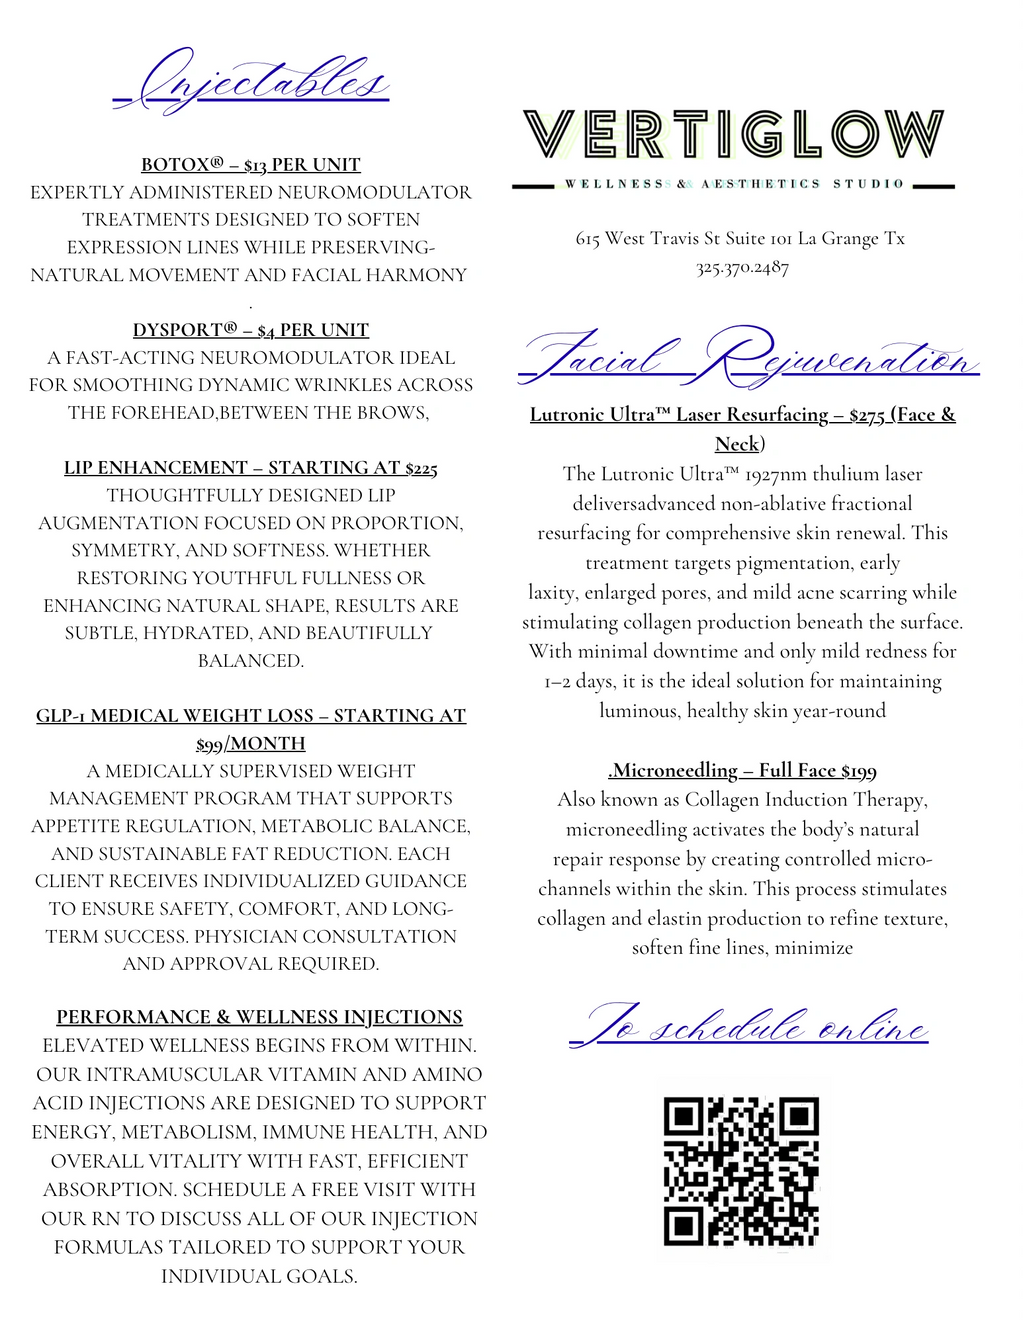 Injectables
BOTOX® – $13 PER UNIT
EXPERTLY ADMINISTERED NEUROMODULATOR
TREATMENTS DESIGNED TO SOFTEN
EXPRESSION LINES WHILE PRESERVING-
NATURAL MOVEMENT AND FACIAL HARMONY
.
DYSPORT® – $4 PER UNIT
A FAST-ACTING NEUROMODULATOR IDEAL
FOR SMOOTHING DYNAMIC WRINKLES ACROSS
THE FOREHEAD,BETWEEN THE BROWS,
LIP ENHANCEMENT – STARTING AT $225
THOUGHTFULLY DESIGNED LIP
AUGMENTATION FOCUSED ON PROPORTION,
SYMMETRY, AND SOFTNESS. WHETHER
RESTORING YOUTHFUL FULLNESS OR
ENHANCING NATURAL SHAPE, RESULTS ARE
SUBTLE, HYDRATED, AND BEAUTIFULLY
BALANCED.
GLP-1 MEDICAL WEIGHT LOSS – STARTING AT
$99/MONTH
A MEDICALLY SUPERVISED WEIGHT
MANAGEMENT PROGRAM THAT SUPPORTS
APPETITE REGULATION, METABOLIC BALANCE,
AND SUSTAINABLE FAT REDUCTION. EACH
CLIENT RECEIVES INDIVIDUALIZED GUIDANCE
TO ENSURE SAFETY, COMFORT, AND LONG-
TERM SUCCESS. PHYSICIAN CONSULTATION
AND APPROVAL REQUIRED.
PERFORMANCE & WELLNESS INJECTIONS
ELEVATED WELLNESS BEGINS FROM WITHIN.
OUR INTRAMUSCULAR VITAMIN AND AMINO
ACID INJECTIONS ARE DESIGNED TO SUPPORT
ENERGY, METABOLISM, IMMUNE HEALTH, AND
OVERALL VITALITY WITH FAST, EFFICIENT
ABSORPTION. SCHEDULE A FREE VISIT WITH
OUR RN TO DISCUSS ALL OF OUR INJECTION
FORMULAS TAILORED TO SUPPORT YOUR
INDIVIDUAL GOALS.
VERTIGLOW
WELLNESS & AESTHETICS STUDIO
615 West Travis St Suite 101 La Grange Tx
325.370.2487
Facial Rejuvenation
Lutronic Ultra™ Laser Resurfacing – $275 (Face &
Neck)
The Lutronic Ultra™ 1927nm thulium laser
deliversadvanced non-ablative fractional
resurfacing for comprehensive skin renewal. This
treatment targets pigmentation, early
laxity, enlarged pores, and mild acne scarring while
stimulating collagen production beneath the surface.
With minimal downtime and only mild redness for
1–2 days, it is the ideal solution for maintaining
luminous, healthy skin year-round
.Microneedling – Full Face $199
Also known as Collagen Induction Therapy,
microneedling activates the body’s natural
repair response by creating controlled micro-
channels within the skin. This process stimulates
collagen and elastin production to refine texture,
soften fine lines, minimize
To schedule online